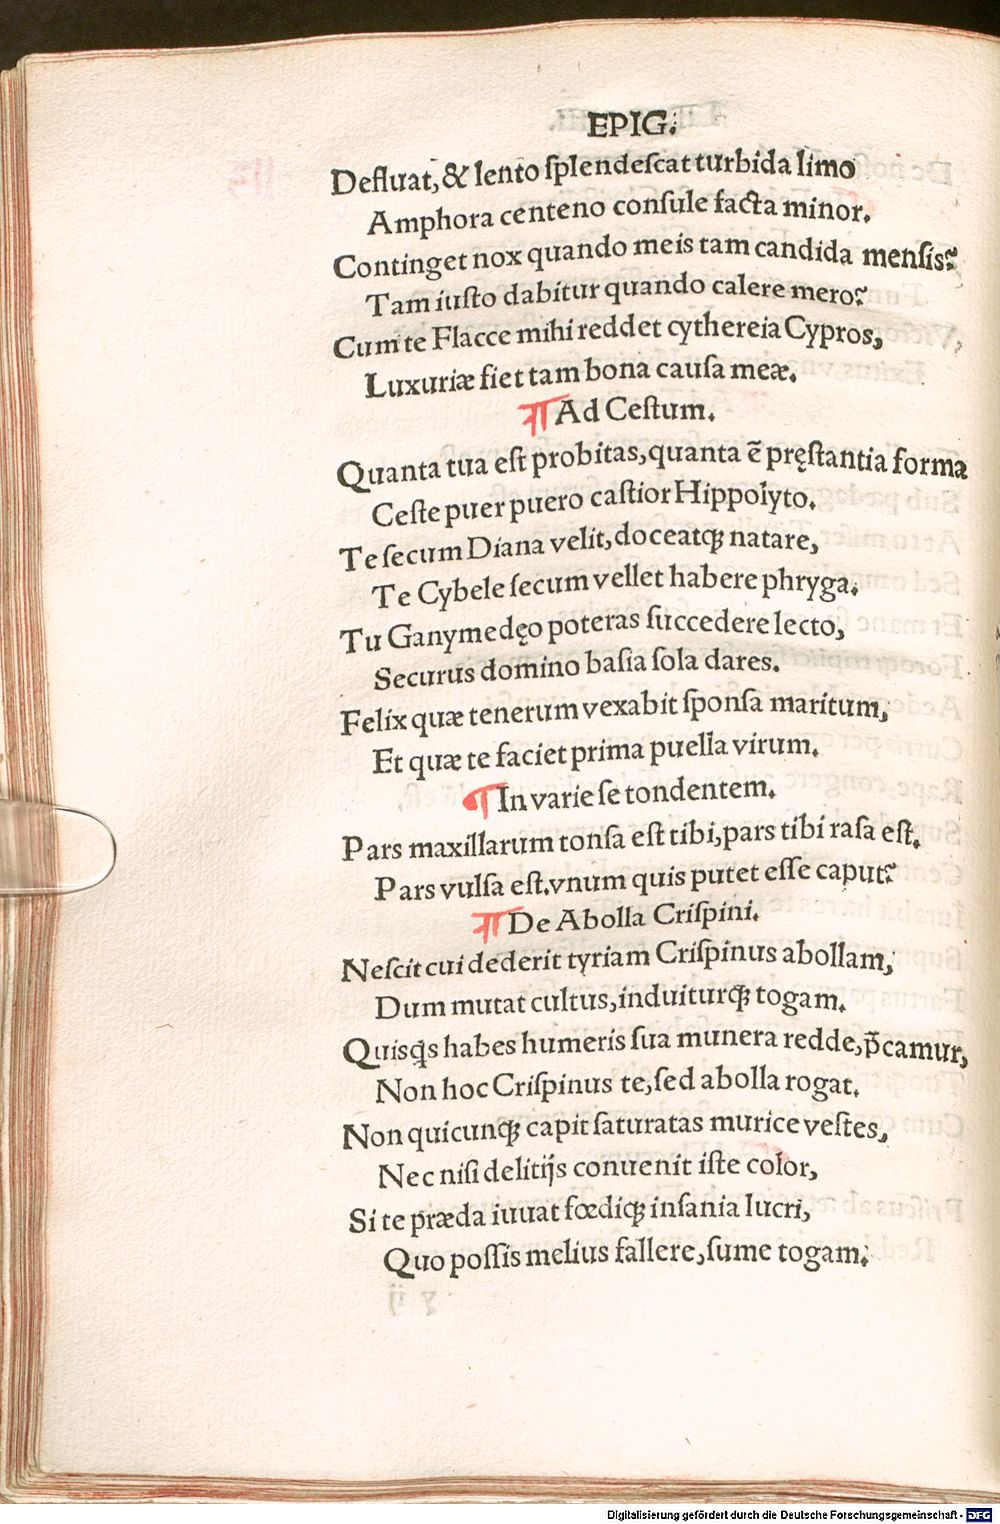 EPIG.
Defluat, & lento ſplendeſcat turbida limo
Amphora centeno conſule facta minor.
Continget nox quando meis tam candida menſis?
Tam iuſto dabitur quando calere mero?
Cum te Flacce mihi reddet cythereia Cypros,
Luxuriæ fiet tam bona cauſa meæ.
¶ Ad Ceſtum.
Quanta tua eſt probitas, quanta ē pręſtantia forma
Ceſte puer puero caſtior Hippolyto.
Te ſecum Diana velit, doceatqꝫ natare,
Te Cybele ſecum vellet habere phryga.
Tu Ganymedęo poteras ſuccedere lecto,
Securus domino baſia ſola dares.
Felix quæ tenerum vexabit ſponſa maritum,
Et quæ te faciet prima puella virum.
¶ In varie ſe tondentem.
Pars maxillarum tonſa eſt tibi, pars tibi raſa eſt.
Pars vulſa eſt. vnum quis putet eſſe caput?
¶ De Abolla Criſpini.
Neſcit cui dederit tyriam Criſpinus abollam,
Dum mutat cultus, induiturqꝫ togam.
Quisq̇s habes humeris ſua munera redde, p̄camur,
Non hoc Criſpinus te, ſed abolla rogat.
Non quicunqꝫ capit ſaturatas murice veſtes,
Nec niſi delitijs conuenit iſte color,
Si te præda iuuat fœdiqꝫ inſania lucri,
Quo poſſis melius fallere, ſume togam.
Digitalisierung gefördert durch die Deutsche Forschungsgemeinschaft - DFG